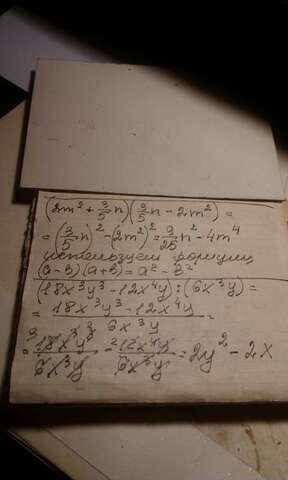 (2m² + 3/5 n)(3/5 n - 2m²) =
= (3/5 n)² - (2m²)² = 9/25 n² - 4m⁴
используем формулу
(a-в)(a+в) = a² - в²
(18x³y³ - 12x⁴y) : (6x³y) =
= 18x³y³ - 12x⁴y / 6x³y =
= 18x³y³ / 6x³y - 12x⁴y / 6x³y = 2y² - 2x